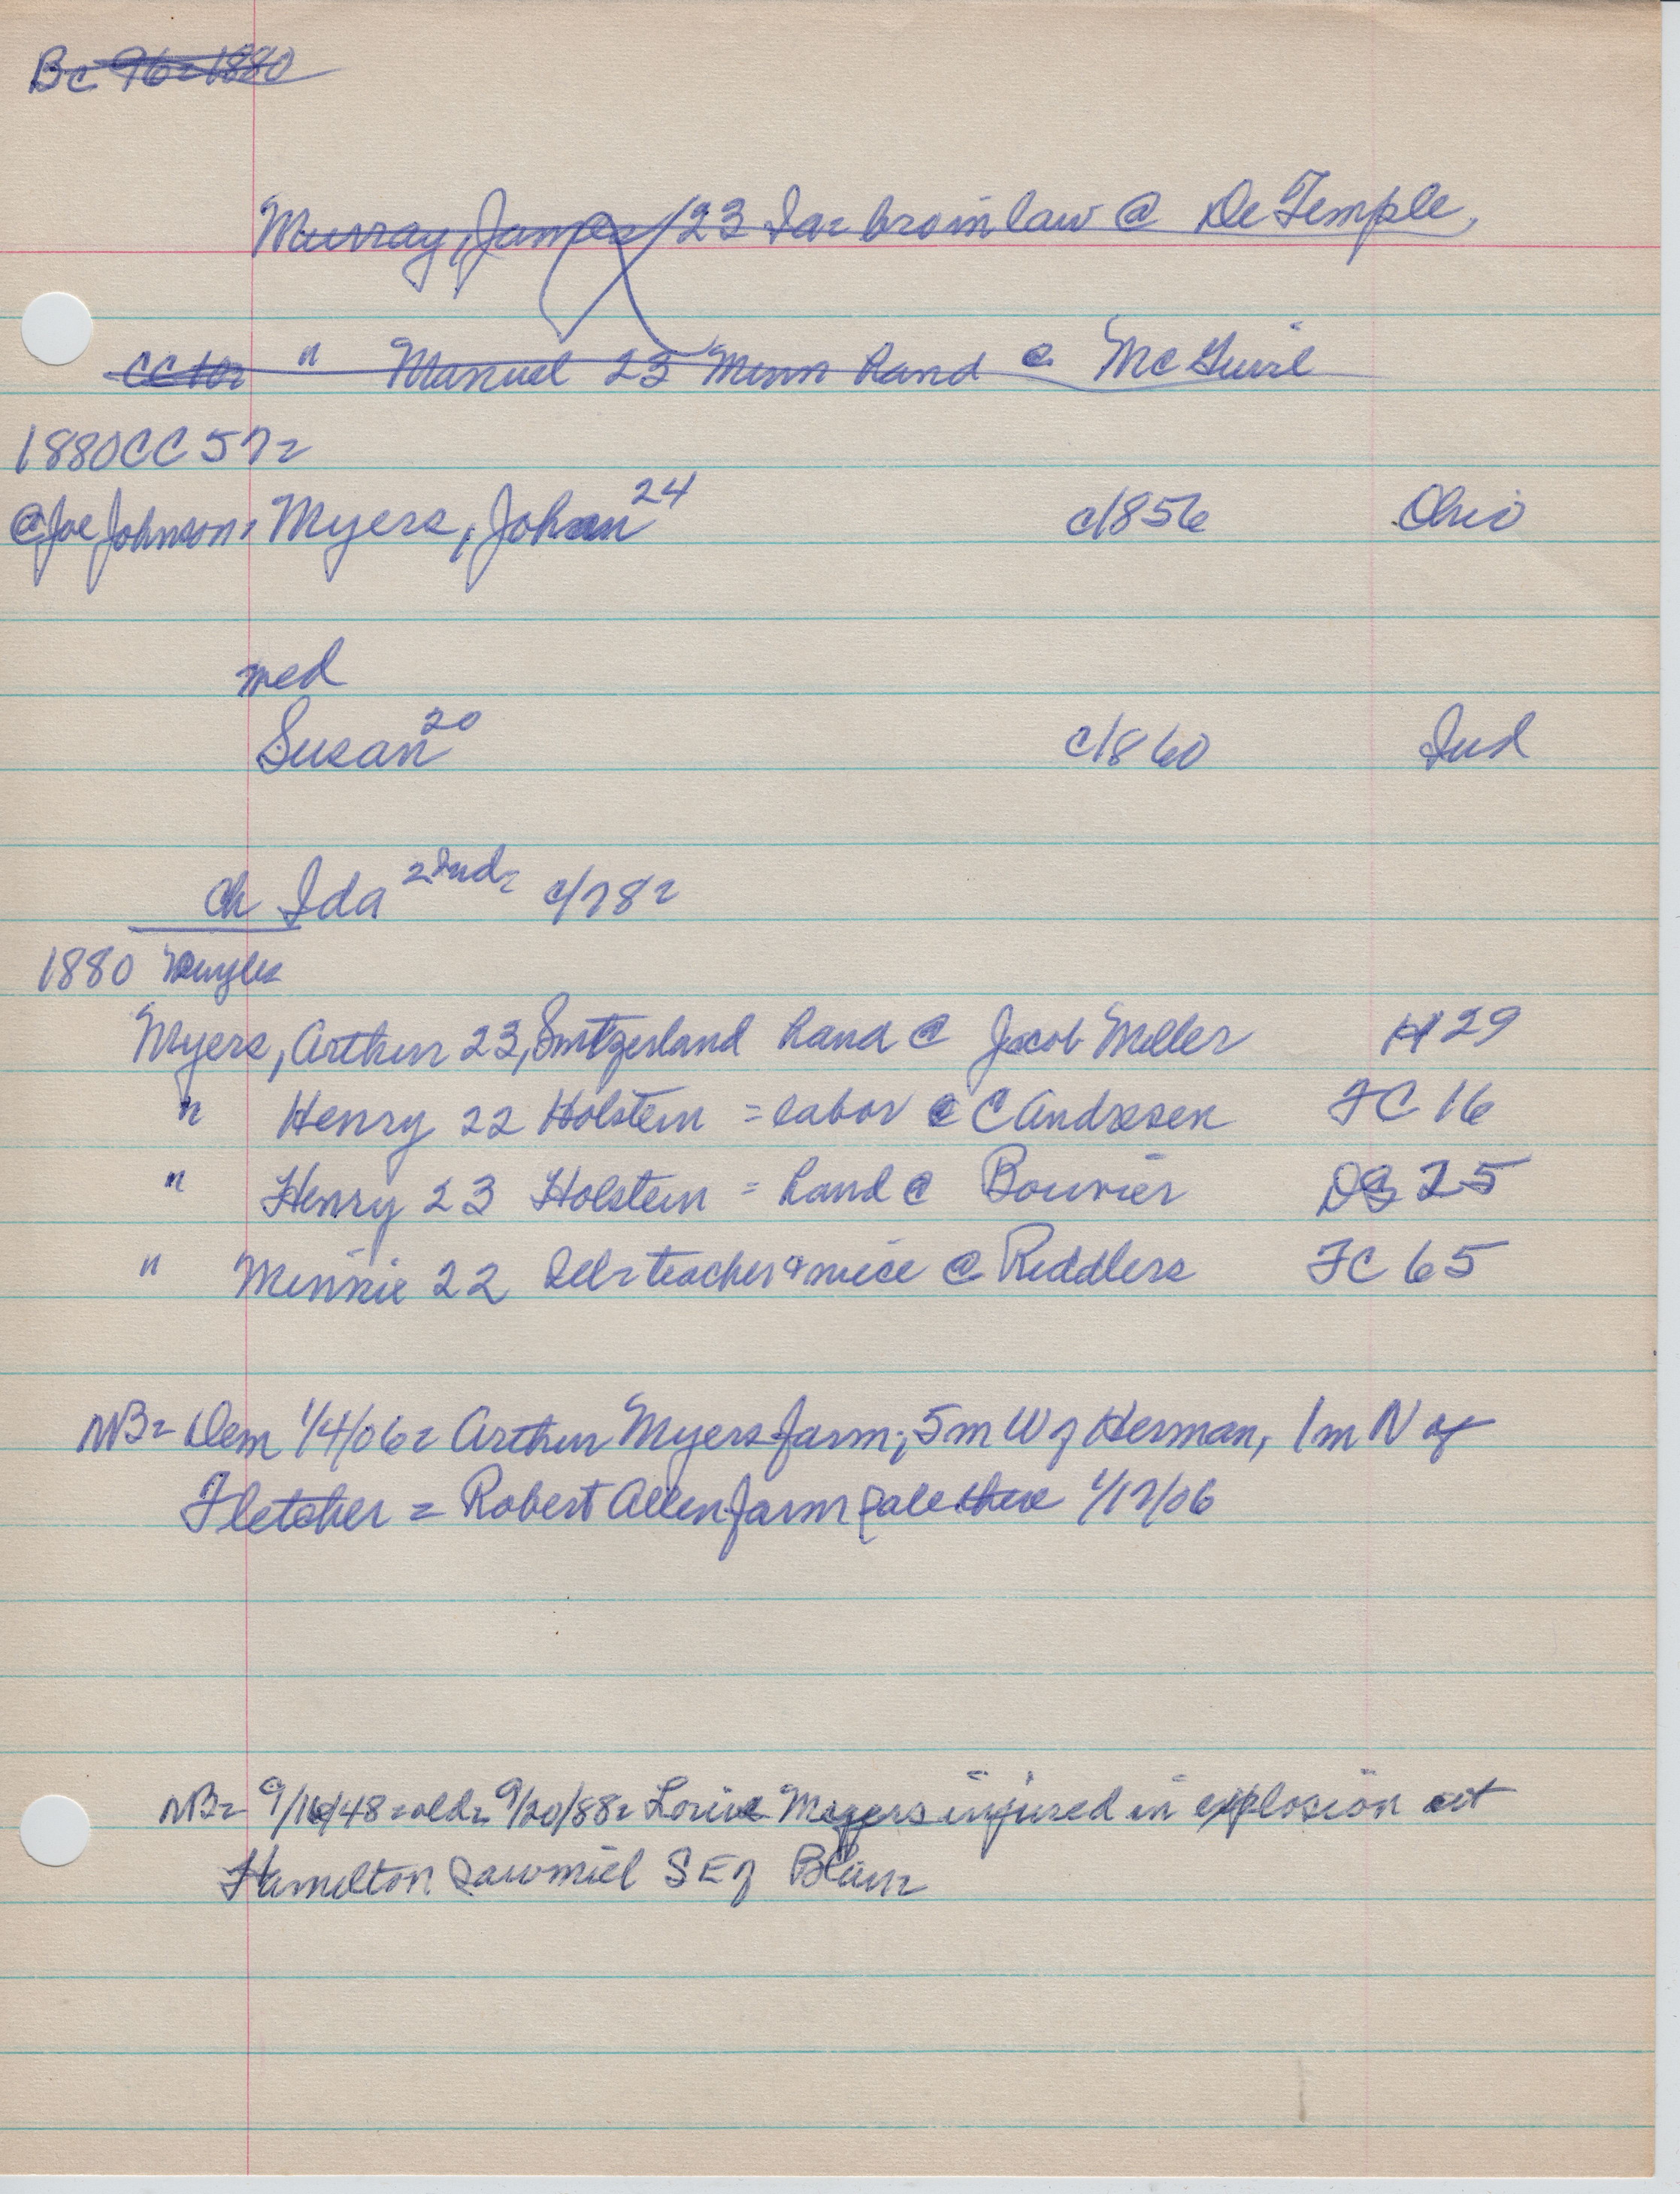 Bc 96 = 1880
Murray, James 23 Ia = bro in law @ De Temple,
" Manuel 23 Minn hand @
1880 CC 57 =
@ Joe Johnson, Myers, John 24 c/1856 Ohio
med
Susan 20 c/1860 Ind
ch Ida 2 Ind = c/78 =
1880
Myers, Arthur 23, Switzerland hand @ Jacob Miller H 29
" Henry 22 Holstein = labor @ C Andresen FC 16
" Henry 23 Holstein = hand @ Bouvier DS 25
" Minnie 22 = teacher & niece @ Riddlers FC 65
NB = Dem 1/4/06 = Arthur Myers farm, 5 m W of Herman, 1 m N of
Fletcher = Robert Allen farm sale there 1/17/06
NB = 9/16/48 = old = 9/20/88 = Louie Meyers injured in explosion at
Hamilton sawmill SE of Blair